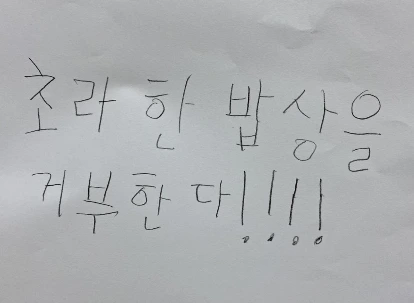 초라한 밥상을
거부한다!!!!